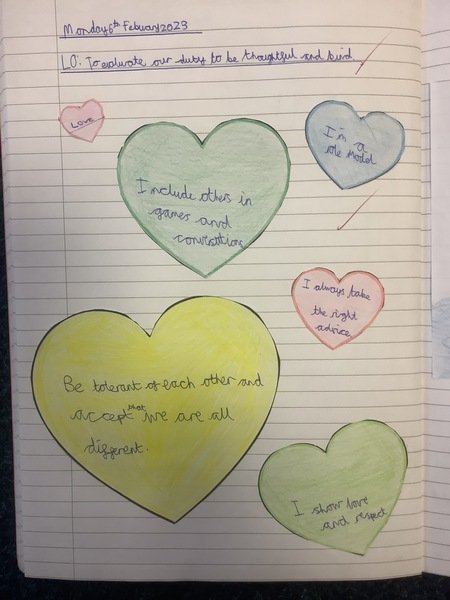 Monday 6th Febuary 2023
LO: To evaluate our duty to be thoughtful and kind.
LOVE
I'm a
role model
I include others in
games and
convisations
I always take
the right
advice
Be tolerant of each other and
accept that we are all
different.
I show love
and respect